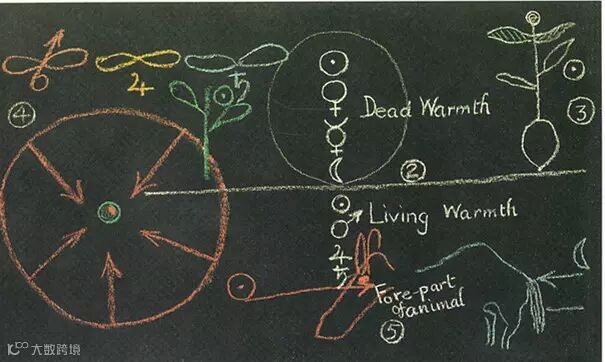 ♂ ♃ ♄
☉
☉
♀
☿
☾
Dead Warmth
☉
③
④
②
☉
♂
♃
♄
Living Warmth
☉
Fore-part
of animal
⑤
☾
大数跨境